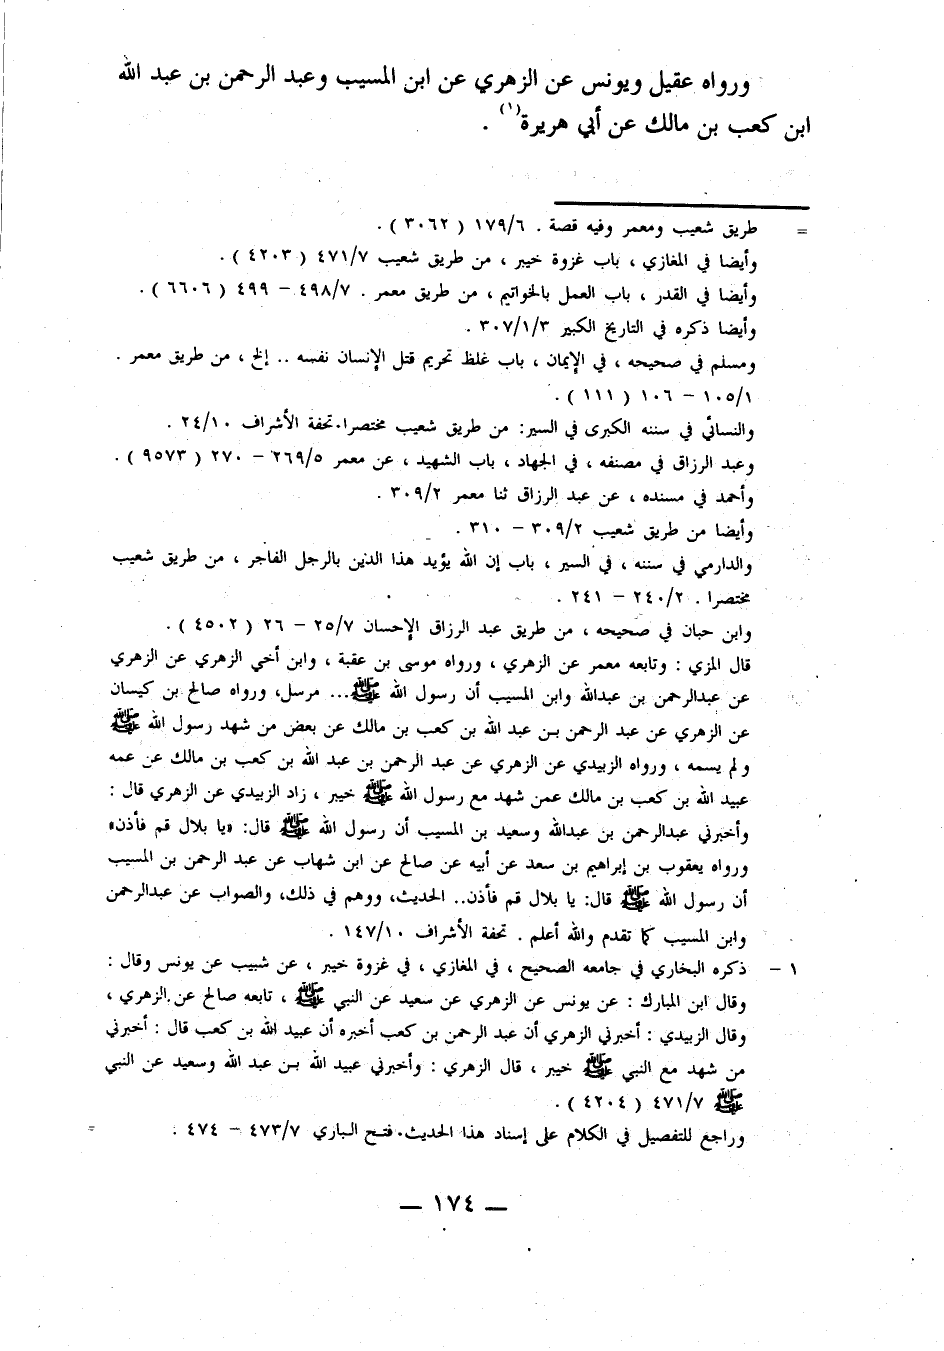 ورواه عقيل ويونس عن الزهري عن ابن المسيب وعبد الرحمن بن عبد الله
ابن كعب بن مالك عن أبي هريرة(١) .
= طريق شعيب ومعمر وفيه قصة . ١٧٩/٦ ( ٣٠٦٢ ) .
وأيضا في المغازي ، باب غزوة خيبر ، من طريق شعيب ٤٧١/٧ ( ٤٢٠٣ ) .
وأيضا في القدر ، باب العمل بالخواتيم ، من طريق معمر . ٤٩٨/٧ – ٤٩٩ ( ٦٦٠٦ ) .
وأيضا ذكره في التاريخ الكبير ٣٠٧/١/٣ .
ومسلم في صحيحه ، في الإيمان ، باب غلظ تحريم قتل الإنسان نفسه .. إلخ ، من طريق معمر .
١٠٥/١ – ١٠٦ ( ١١١ ) .
والنسائي في سننه الكبرى في السير: من طريق شعيب مختصرا. تحفة الأشراف ٢٤/١٠ .
وعبد الرزاق في مصنفه ، في الجهاد ، باب الشهيد ، عن معمر ٢٦٩/٥ – ٢٧٠ ( ٩٥٧٣ ) .
وأحمد في مسنده ، عن عبد الرزاق ثنا معمر ٣٠٩/٢ .
وأيضا من طريق شعيب ٣٠٩/٢ – ٣١٠ .
والدارمي في سننه ، في السير ، باب إن الله يؤيد هذا الدين بالرجل الفاجر ، من طريق شعيب
مختصرا . ٢٤٠/٢ – ٢٤١ .
وابن حبان في صحيحه ، من طريق عبد الرزاق الإحسان ٢٥/٧ – ٢٦ ( ٤٥٠٢ ) .
قال المزي : وتابعه معمر عن الزهري ، ورواه موسى بن عقبة ، وابن أخي الزهري عن الزهري
عن عبدالرحمن بن عبدالله وابن المسيب أن رسول الله ﷺ... مرسل، ورواه صالح بن كيسان
عن الزهري عن عبد الرحمن بن عبد الله بن كعب بن مالك عن بعض من شهد رسول الله ﷺ
ولم يسمه ، ورواه الزبيدي عن الزهري عن عبد الرحمن بن عبد الله بن كعب بن مالك عن عمه
عبيد الله بن كعب بن مالك عمن شهد مع رسول الله ﷺ خيبر ، زاد الزبيدي عن الزهري قال :
وأخبرني عبدالرحمن بن عبدالله وسعيد بن المسيب أن رسول الله ﷺ قال: «يا بلال قم فأذن»
ورواه يعقوب بن إبراهيم بن سعد عن أبيه عن صالح عن ابن شهاب عن عبد الرحمن بن المسيب
أن رسول الله ﷺ قال: يا بلال قم فأذن.. الحديث، ووهم في ذلك، والصواب عن عبدالرحمن
وابن المسيب كما تقدم والله أعلم . تحفة الأشراف ١٤٧/١٠ .
١ – ذكره البخاري في جامعه الصحيح ، في المغازي ، في غزوة خيبر ، عن شبيب عن يونس وقال :
وقال ابن المبارك : عن يونس عن الزهري عن سعيد عن النبي ﷺ ، تابعه صالح عن الزهري ،
وقال الزبيدي : أخبرني الزهري أن عبد الرحمن بن كعب أخبره أن عبيد الله بن كعب قال : أخبرني
من شهد مع النبي ﷺ خيبر ، قال الزهري : وأخبرني عبيد الله بن عبد الله وسعيد عن النبي
ﷺ ٤٧١/٧ ( ٤٢٠٤ ) .
وراجع للتفصيل في الكلام على إسناد هذا الحديث. فتح الباري ٤٧٣/٧ – ٤٧٤ . =
— ١٧٤ —